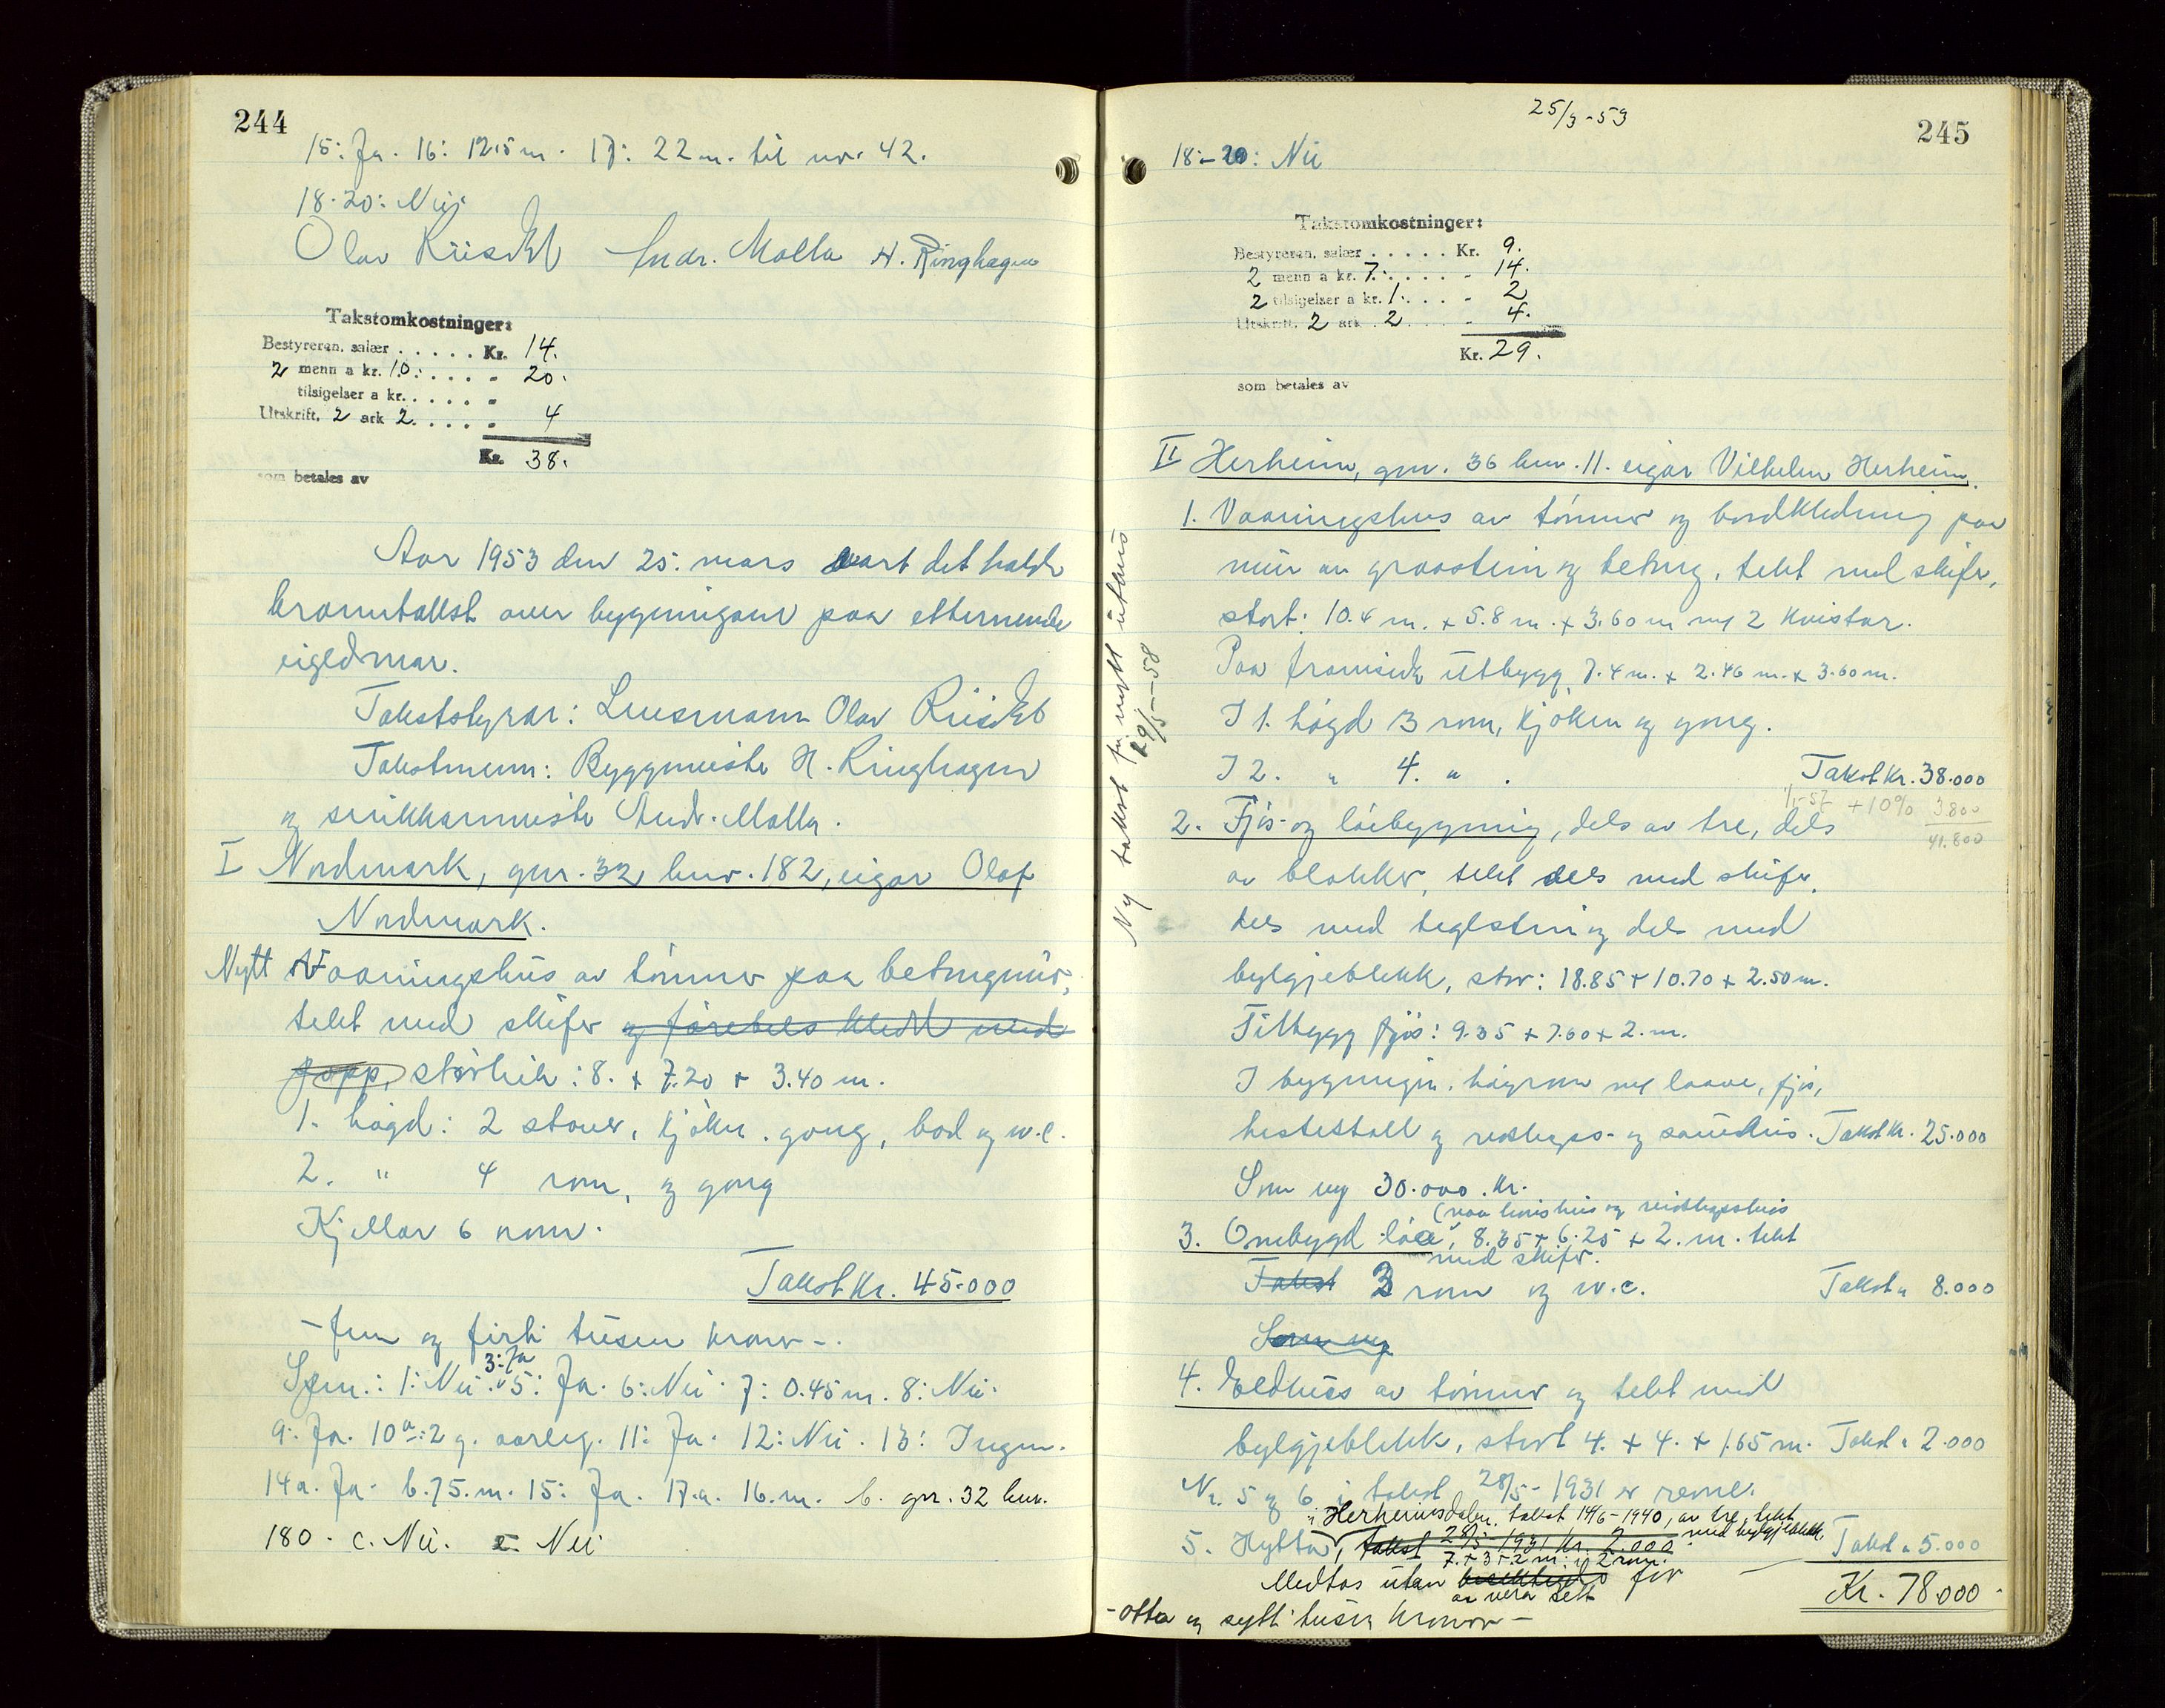 244
15: Ja. 16: 12.5 m. 17: 22 m. til nr. 42.
18-20: Nei.
Olav Riisdal Andr. Molla H. Ringhagen
Takstomkostninger:
Bestyreren, salær . . . . . Kr. 14.
2 menn a kr. 10: . . . . - 20.
tilsigelser a kr. . . . . . -
Utskrift, 2 ark 2. . . . . - 4
Kr. 38.
som betales av
Aar 1953 den 25. mars vart det halde
branntakst over bygningane paa etternemnde
eigedomar.
Takststyrar: Lensmann Olav
Takstmenn: Byggmeister H. Ringhagen
og snikkarmeister Andr. Molla.
I Nordmark, gnr. 32 bnr. 182, eigar Olaf
Nordmark.
Nytt Vaaningshus av tømmer paa betongmur,
tekt med skifer og førebels kledd med
papp, storleik: 8. + 7.20 + 3.40 m.
1. høgd: 2 stover, kjøken, gong, bod og w.c.
2. " 4 rom, og gong
Kjellar 6 rom.
Takst kr. 45.000
- fem og firti tusen kroner -.
Spm.: 1: Nei. 3: Ja 5: Ja. 6: Nei. 7: 0.45 m. 8: Nei.
9: Ja. 10a: 2 g. aarleg. 11: Ja. 12: Nei. 13: Ingen.
14a. Ja. b. 75. m. 15: Ja. 17. a. 16. m. b. gnr. 32 bnr.
180. c. Nei. Nei
25/3-53
245
18-20: Nei
Takstomkostninger:
Bestyreren, salær . . . . . Kr. 9.
2 menn a kr. 7. . . . . - 14.
2 tilsigelser a kr. 1. . . . - 2
Utskrift, 2 ark 2. . . . - 4.
Kr. 29.
som betales av
Ny takst for nytt uthus
29/5-58
II Herheim, gnr. 36 bnr. 11. eigar Vilhelm Herheim.
1. Vaaningshus av tømmer og bordkledning paa
mur av graastein og betong, tekt med skifer,
stort: 10.4 m. + 5.8 m. + 3.60 m og 2 kvistar.
Paa framsida utbygg 7.4 m. + 2.46 m. + 3.60 m.
I 1. høgd 3 rom, kjøken og gong.
I 2. " 4. " . Takst kr. 38.000
1/1-57 +10% 3.800
41.800
2. Fjøs- og løebygning, dels av tre, dels
av blokker, tekt dels med skifer,
dels med teglstein og dels med
bylgjeblekk, stor: 18.85 + 10.70 + 2.50 m.
Tilbygg fjøs: 9.35 + 7.60 + 2. m.
I bygningen, høyrom og laave, fjøs,
hestestall og reidskaps- og sauehus. Takst kr. 25.000
Som ny 30.000. kr.
(naa hønsehus og reidskapshus
3. Ombygd løe, 8.35 + 6.25 + 2. m. tekt
med skifer.
Takst 3 rom og w.c. Takst " 8.000
Som ny
4. Eldhus av tømmer og tekt med
bylgjeblekk, stort 4. + 4. + 1.65 m. Takst " 2.000
Nr. 5 og 6 i takst 28/5-1931 er revne.
i Herheimsdalen, takst 14/6-1940, av tre, tekt
med bylgjeblekk.
5. Hytta, takst 28/5 1931 kr. 2.000 Takst " 5.000
7. + 3 + 2 m: og 2 rom.
Medtas utan besiktigelse for
av vera sett
Kr. 78.000
- otta og sytti tusen kroner -